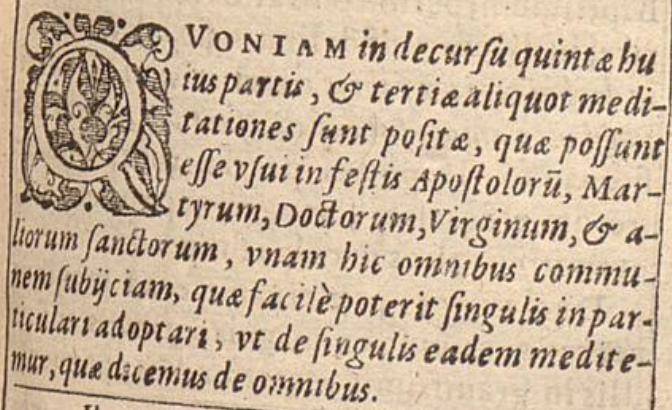 QVONIAM in decursu quintæ hu
ius partis, & tertiæ aliquot medi-
tationes sunt positæ, quæ possunt
esse vsui in festis Apostolorū, Mar-
tyrum, Doctorum, Virginum, & a-
liorum sanctorum, vnam hic omnibus commu-
nem subijciam, quæ facilè poterit singulis in par-
ticulari adoptari, vt de singulis eadem medite-
mur, quæ dicemus de omnibus.